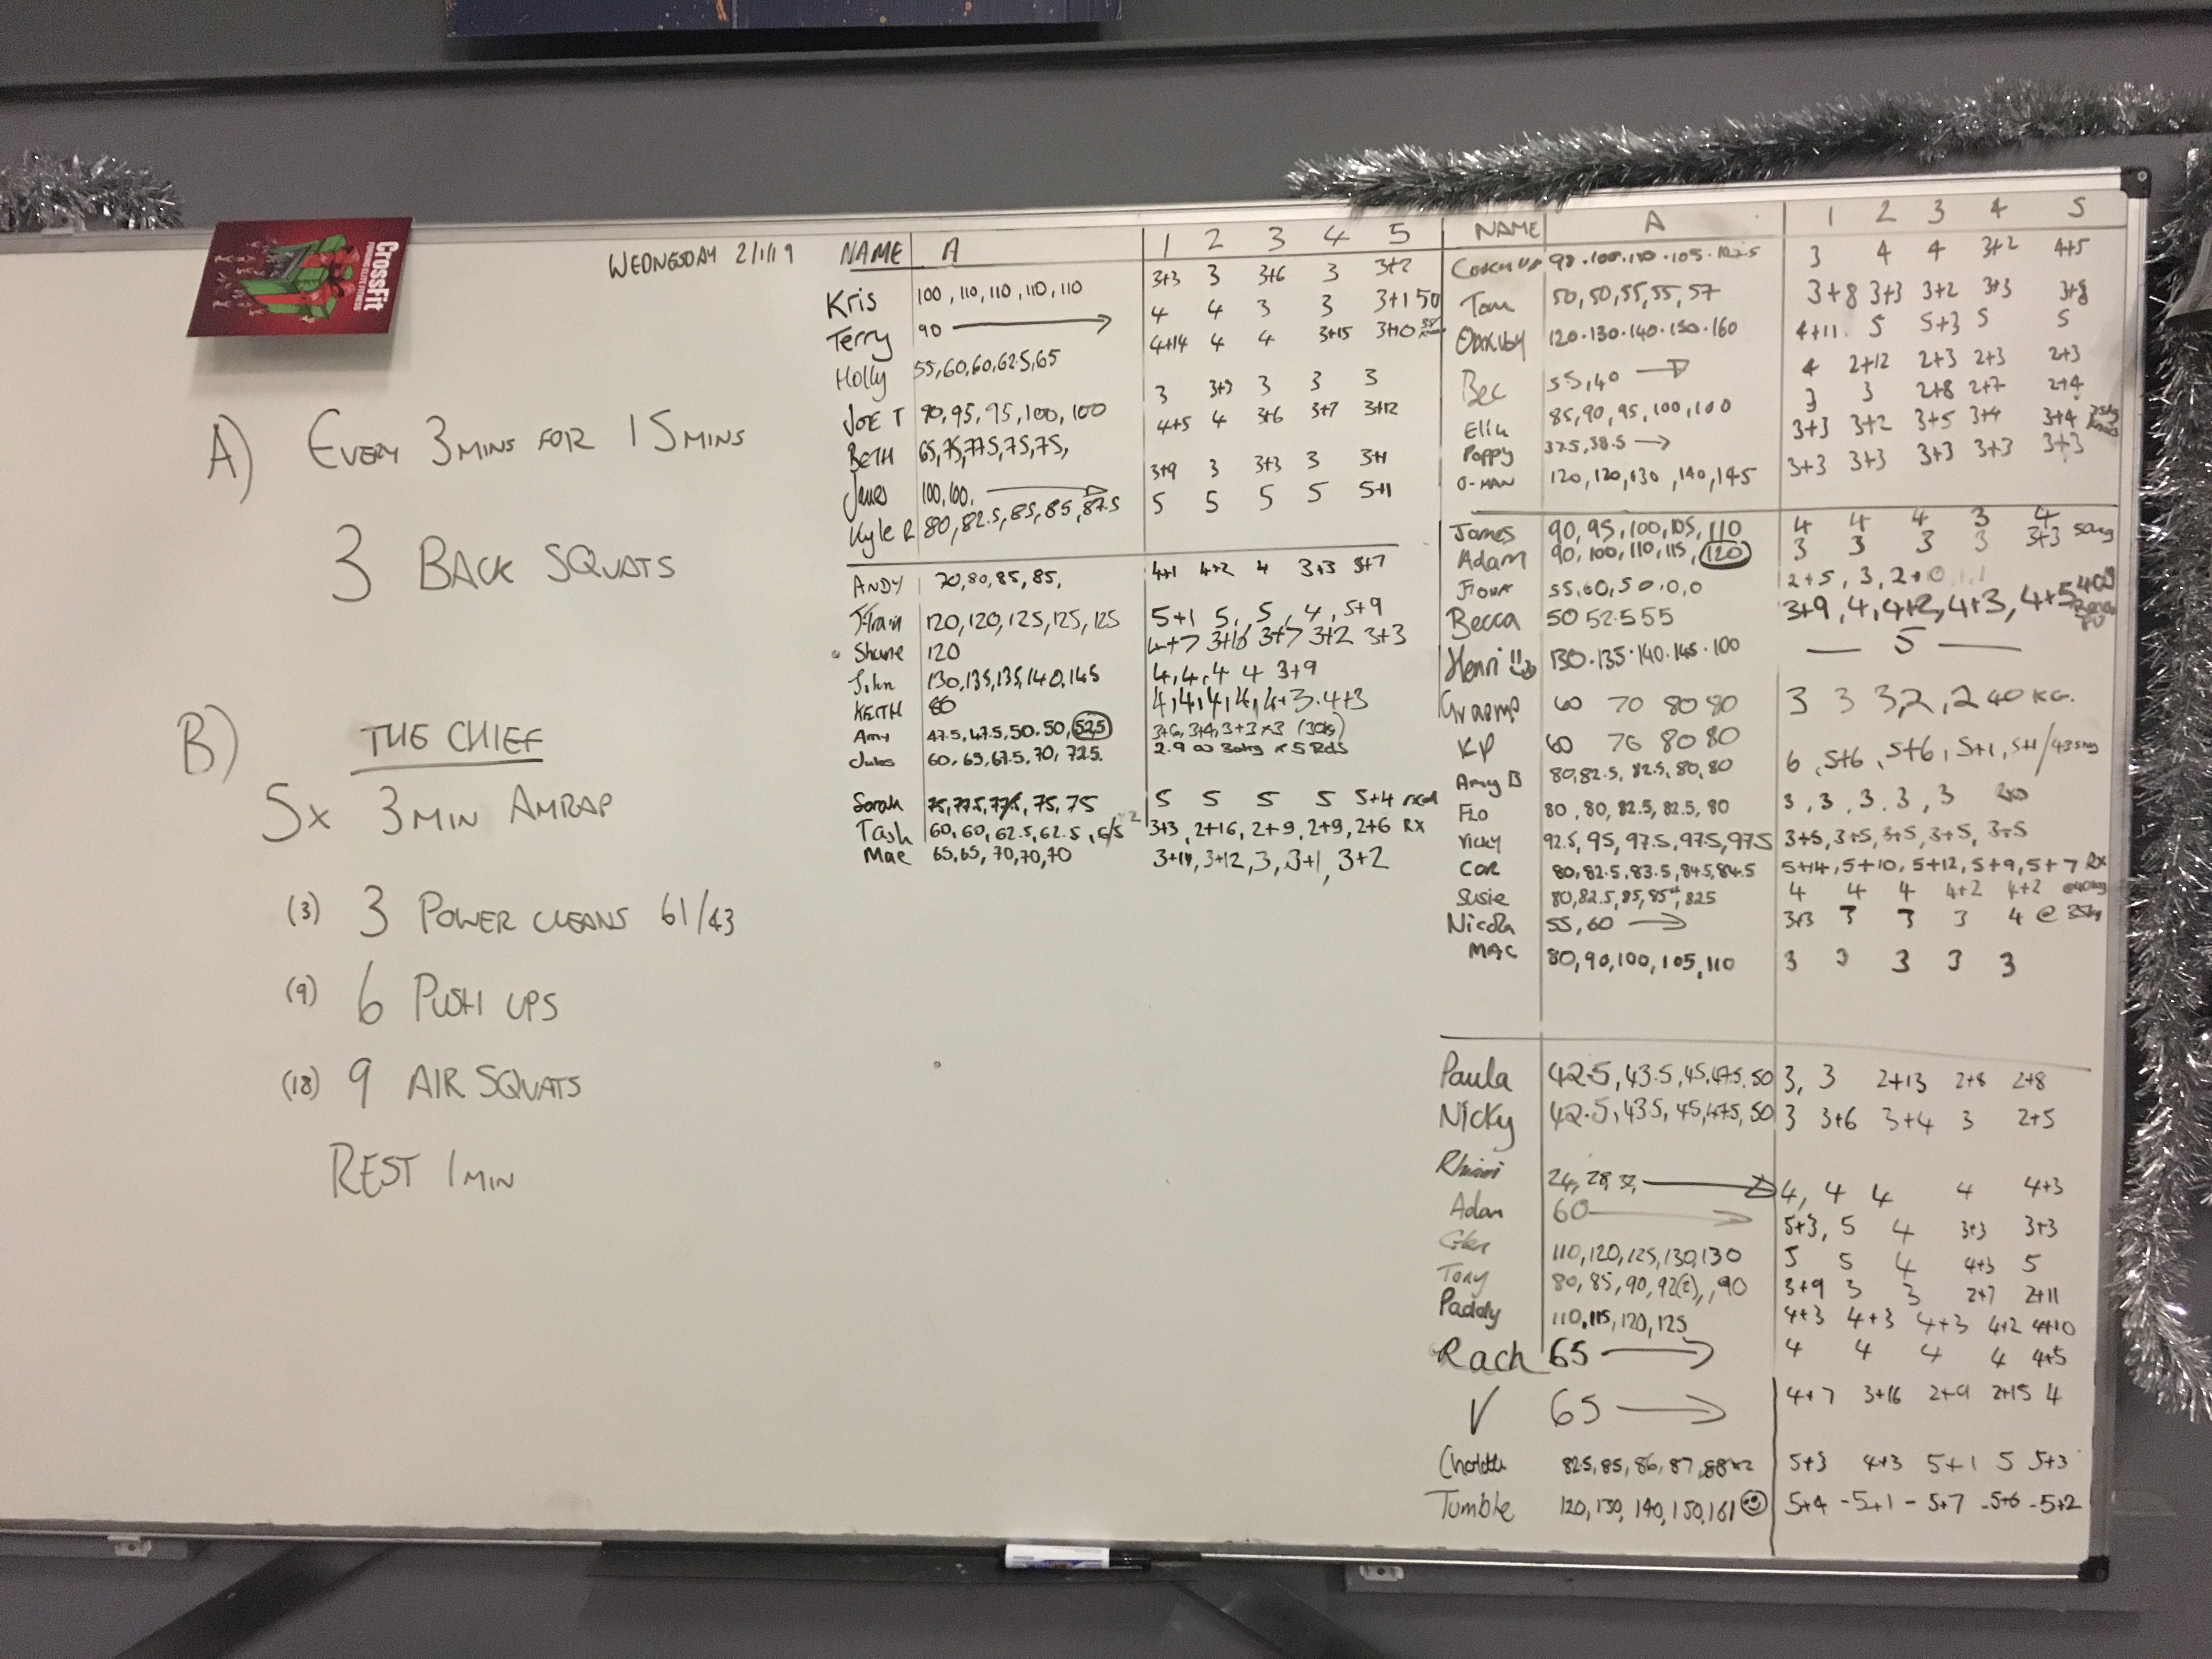 CrossFit
FORGING ELITE FITNESS
WEDNESDAY 2/1/19
A) EVERY 3 MINS FOR 15 MINS
3 BACK SQUATS
B) THE CHIEF
5x 3 MIN AMRAP
(3) 3 POWER CLEANS 61/43
(9) 6 PUSH UPS
(18) 9 AIR SQUATS
REST 1 MIN
NAME A 1 2 3 4 5
Kris 100, 110, 110, 110, 110 3+3 3 3+6 3 3+2
Terry 90 → 4 4 3 3 3+1 50
Holly 55,60,60,62.5,65 4+14 4 4 3+15 3+10
JOE T 90,95,95,100,100 3 3+9 3 3 3
BETH 65,75,77.5,75,75, 4+5 4 3+6 3+7 3+12
James 100,100, → 3+9 3 3+3 3 3+1
Kyle R 80,82.5,85,85,87.5 5 5 5 5 5+1
ANDY 70,80,85,85, 4+1 4+2 4 3+3 3+7
120,120,125,125,125 5+1 5, 5, 4, 5+9
Shane 120 4+7 3+10 3+7 3+2 3+3
John 130,135,135,140,145 4,4,4 4 3+9
KEITH 80 4,4,4,4,4+3.4+3
Amy 47.5,47.5,50.50,52.5 3+6,3+4,3+3 x3 (30kg)
Jules 60, 65, 67.5, 70, 72.5. 2.9 @ 30kg x 5 Rds
Sarah 75,77.5,77.5,75,75 5 5 5 5 5+4
Tash 60,60,62.5,62.5, 3+3, 2+16, 2+9, 2+9, 2+6 RX
Mae 65,65,70,70,70 3+14, 3+12, 3, 3+1, 3+2
NAME A 1 2 3 4 5
90.100.110.105.102.5 3 4 4 3+2 4+5
Tom 50,50,55,55,57 3+8 3+3 3+2 3+3 3+8
120.130.140.150.160 4+11 5 5+3 5 5
Bec 55,40 → 4 2+12 2+3 2+3 2+3
85,90,95,100,100 3 3 2+8 2+7 2+4
Poppy 37.5,38.5 → 3+3 3+2 3+5 3+4 3+4
O-MAN 120,120,130,140,145 3+3 3+3 3+3 3+3 3+3
James 90,95,100,105,110 4 4 4 3 4
Adam 90,100,110,115,120 3 3 3 3 3+3 50kg
55,60,50.0,0 2+5, 3, 2+0
Becca 50 52.5 55 3+9, 4, 4+2, 4+3, 4+5
Henri 130.135.140.145.100 — 5 —
Graeme 60 70 80 80 3 3 3,2,2 40 KG.
KP 60 70 80 80
Amy B 80,82.5,82.5,80,80 6, 5+6, 5+6, 5+1, 5+1/43.5kg
FLO 80,80,82.5,82.5,80 3, 3, 3, 3
Vicky 92.5,95,97.5,97.5,97.5 3+5, 3+5, 3+5, 3+5, 3+5
COR 80,82.5,83.5,84.5,84.5 5+14, 5+10, 5+12, 5+9, 5+7 RX
Susie 80,82.5,85,85, 82.5 4 4 4 4+2 4+2 @40kg
Nicola 55,60 → 3+3 3 3 3 4 @ 35kg
MAC 80,90,100,105,110 3 3 3 3 3
Paula 42.5,43.5,45,47.5,50 3, 3 2+13 2+8 2+8
Nicky 42.5,43.5,45,47.5,50 3 3+6 3+4 3 2+5
24,28,32, → 4, 4 4 4 4+3
Adam 60 → 5+3, 5 4 3+3 3+3
Glen 110,120,125,130,130 5 5 4 4+3 5
Tony 80,85,90,92(2),,90 3+9 3 3 2+7 2+11
Paddy 110,115,120,125 4+3 4+3 4+3 4+2 4+10
Rach 65 → 4 4 4 4 4+5
V 65 → 4+7 3+16 2+9 2+15 4
82.5,85,86,87,88x2 5+3 4+3 5+1 5 5+3
Tumble 120,130,140,150,161 5+4 -5+1 - 5+7 -5+6 -5+2